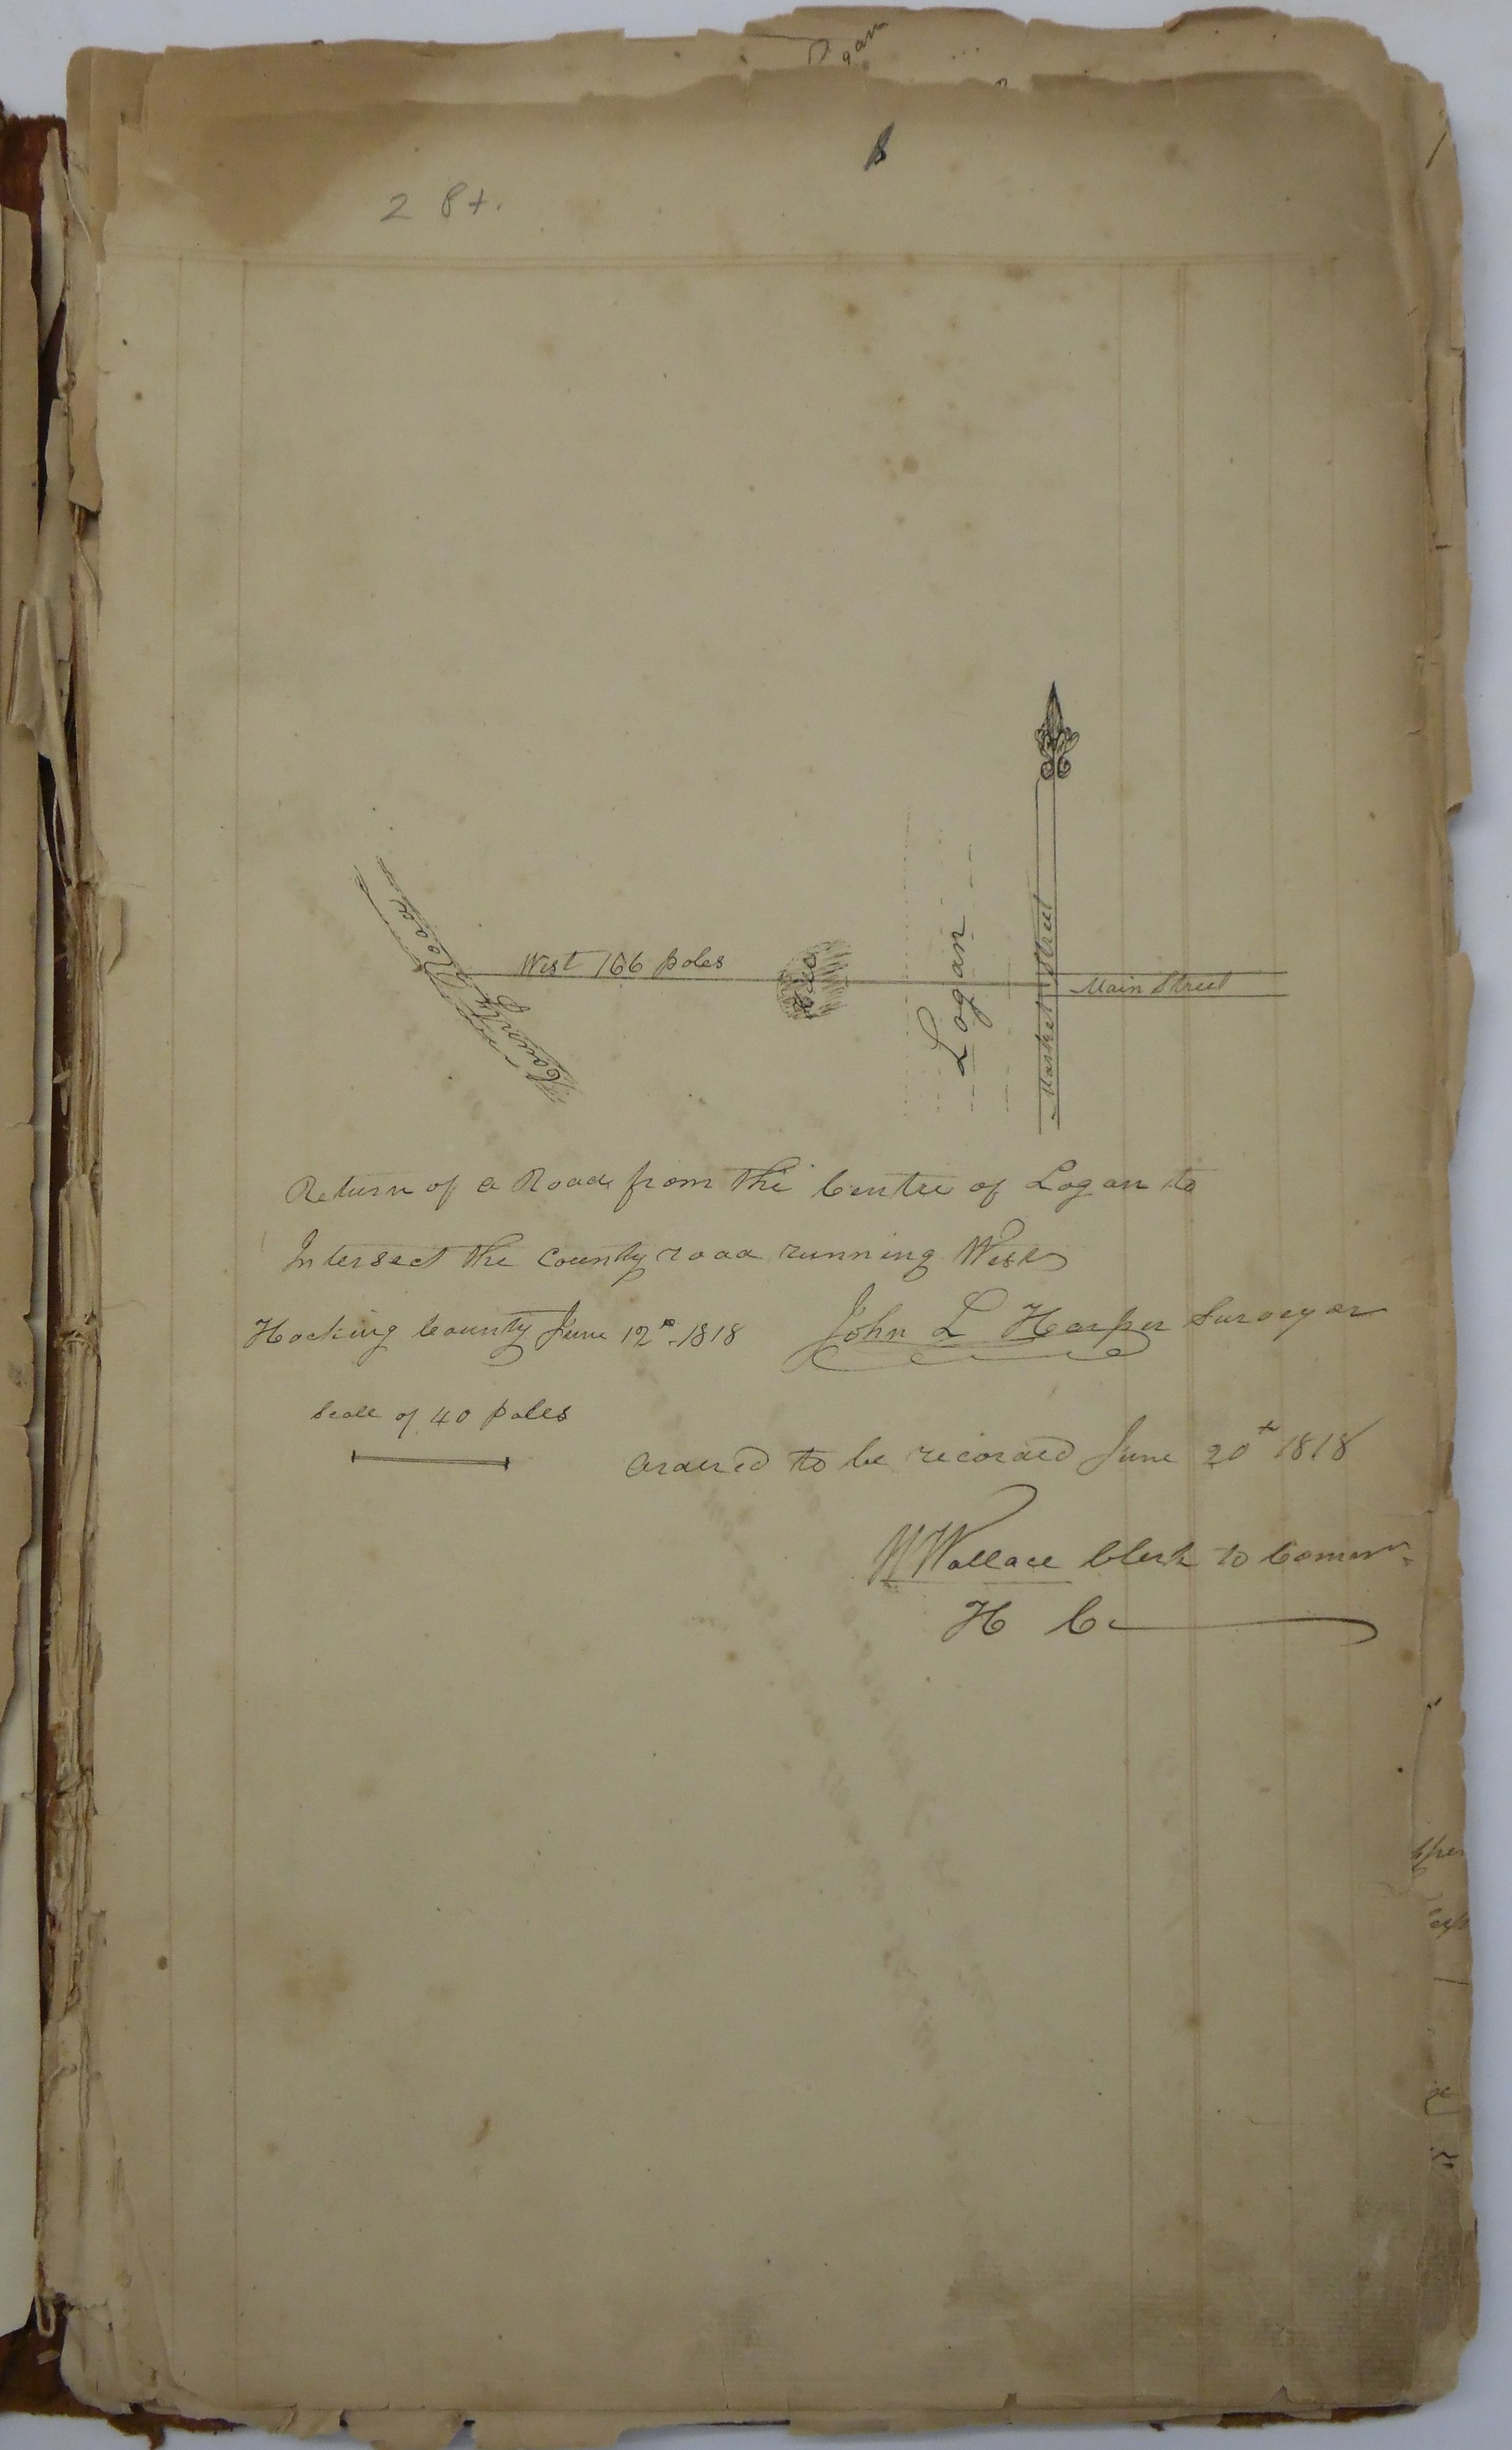 2 8+.
West 166 poles
County Road
Logan
Market Street
Main Street
Return of a Road from the Centre of Logan to
Intersect the County road running West
Hocking County June 12th. 1818
John L Harper Surveyor
Scale of 40 poles
Ordered to be recorded June 20th 1818
W Wallace Clerk to Commrs.
H C